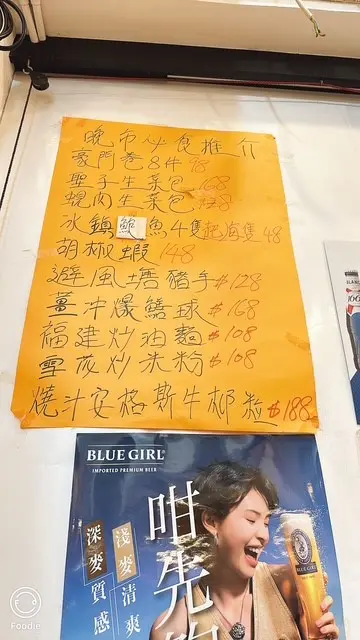 晚市心食推介
豪門卷8件98
聖子生菜包168
蜆肉生菜包
冰鎮鮑魚4隻起海隻48
胡椒蝦148
避風塘豬手$128
薑沖爆鱔球$168
福建炒油麵$108
雪花炒米粉$108
燒汁安格斯牛柳粒$188
BLUE GIRL
IMPORTED PREMIUM BEER
咁先
淺麥清爽
深麥質感
BLUE GIRL
Foodie